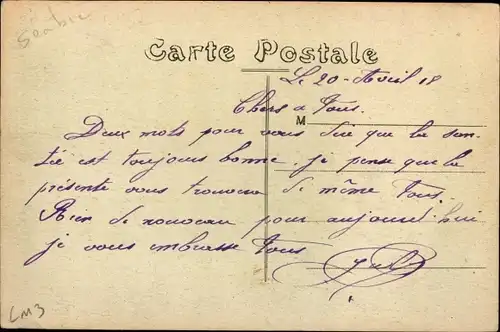 Sambre
Carte Postale
Le 20 Avril 18
Chers a Tous.
M
Deux mots pour vous dire que la san-
tée est toujours bonne. je pense que la
présente vous trouvera de même Tous.
Rien de nouveau pour aujourd'hui
je vous embrasse Tous
LM3